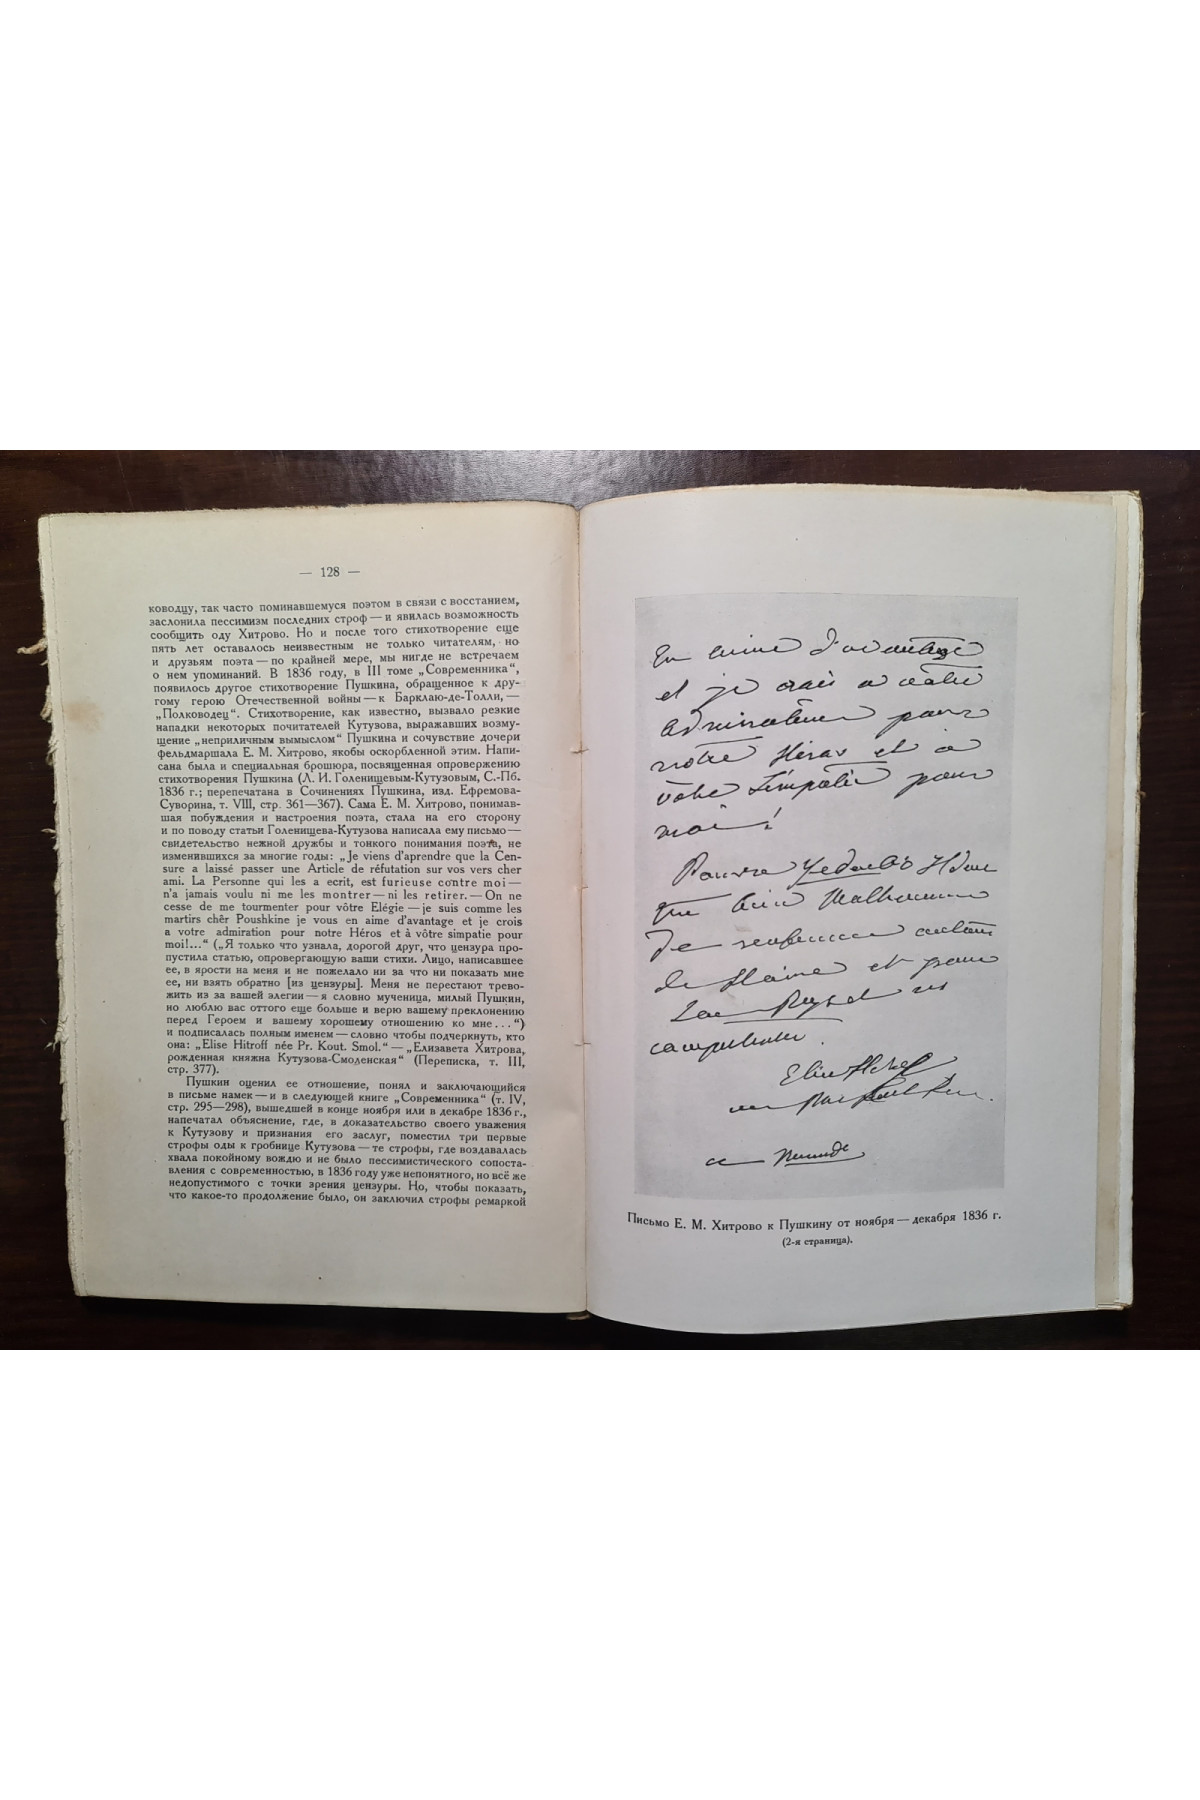 — 128 —
ководцу, так часто поминавшемуся поэтом в связи с восстанием,
заслонила пессимизм последних строф — и явилась возможность
сообщить оду Хитрово. Но и после того стихотворение еще
пять лет оставалось неизвестным не только читателям, но
и друзьям поэта — по крайней мере, мы нигде не встречаем
о нем упоминаний. В 1836 году, в III томе „Современника“,
появилось другое стихотворение Пушкина, обращенное к дру-
гому герою Отечественной войны — к Барклаю-де-Толли, —
„Полководец“. Стихотворение, как известно, вызвало резкие
нападки некоторых почитателей Кутузова, выражавших возму-
щение „неприличным вымыслом“ Пушкина и сочувствие дочери
фельдмаршала Е. М. Хитрово, якобы оскорбленной этим. Напи-
сана была и специальная брошюра, посвященная опровержению
стихотворения Пушкина (Л. И. Голенищевым-Кутузовым, С.-Пб.
1836 г.; перепечатана в Сочинениях Пушкина, изд. Ефремова-
Суворина, т. VIII, стр. 361—367). Сама Е. М. Хитрово, понимав-
шая побуждения и настроения поэта, стала на его сторону
и по поводу статьи Голенищева-Кутузова написала ему письмо —
свидетельство нежной дружбы и тонкого понимания поэта, не
изменившихся за многие годы: „Je viens d'aprendre que la Cen-
sure a laissé passer une Article de réfutation sur vos vers cher
ami. La Personne qui les a ecrit, est furieuse contre moi —
n'a jamais voulu ni me les montrer — ni les retirer. — On ne
cesse de me tourmenter pour vôtre Elégie — je suis comme les
martirs chêr Poushkine je vous en aime d'avantage et je crois
a votre admiration pour notre Héros et à vôtre simpatie pour
moi!...“ („Я только что узнала, дорогой друг, что цензура про-
пустила статью, опровергающую ваши стихи. Лицо, написавшее
ее, в ярости на меня и не пожелало ни за что ни показать мне
ее, ни взять обратно [из цензуры]. Меня не перестают трево-
жить из за вашей элегии — я словно мученица, милый Пушкин,
но люблю вас оттого еще больше и верю вашему преклонению
перед Героем и вашему хорошему отношению ко мне...“)
и подписалась полным именем — словно чтобы подчеркнуть, кто
она: „Elise Hitroff née Pr. Kout. Smol.“ — „Елизавета Хитрова,
рожденная княжна Кутузова-Смоленская“ (Переписка, т. III,
стр. 377).
Пушкин оценил ее отношение, понял и заключающийся
в письме намек — и в следующей книге „Современника“ (т. IV,
стр. 295—298), вышедшей в конце ноября или в декабре 1836 г.,
напечатал объяснение, где, в доказательство своего уважения
к Кутузову и признания его заслуг, поместил три первые
строфы оды к гробнице Кутузова — те строфы, где воздавалась
хвала покойному вождю и не было пессимистического сопоста-
вления с современностью, в 1836 году уже непонятного, но всё же
недопустимого с точки зрения цензуры. Но, чтобы показать,
что какое-то продолжение было, он заключил строфы ремаркой
en aime d'avantage
et je crois a votre
admiration pour
notre Héros et à
vôtre simpatie pour
moi!
Pauvre
que bien Malheureuse
de renfermer autant
de Haine et pour
Elise Hitroff
ce
Письмо Е. М. Хитрово к Пушкину от ноября — декабря 1836 г.
(2-я страница).